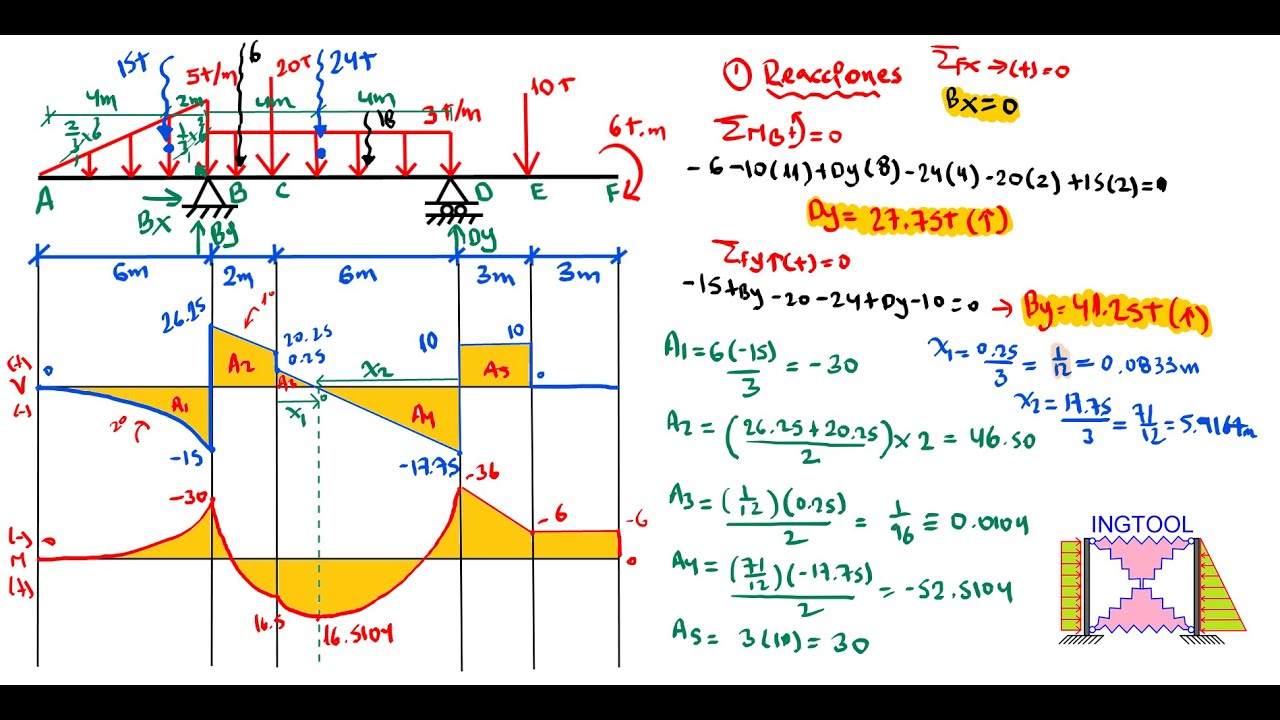 15T
5T/m
6
20T
24T
4m
2m
4m
4m
18
3T/m
10T
6T.m
A
B
C
D
E
F
Bx
By
Dy
6m
2m
6m
3m
3m
26.25
1°
20.25
0.25
10
10
(+)
V
(-)
0
A1
A2
A3
A4
A5
X1
X2
0
0
2°
-15
-17.75
-30
-36
-6
-6
(-)
M
(+)
0
0
16.5
16.5104
① Reacciones
ΣFx→(+)=0
Bx=0
ΣMB(+)=0
-6-10(11)+Dy(8)-24(4)-20(2)+15(2)=0
Dy=27.75T(↑)
ΣFy↑(+)=0
-15+By-20-24+Dy-10=0 → By=41.25T(↑)
A1=6(-15)/3=-30
X1=0.25/3=1/12=0.0833m
X2=17.75/3=71/12=5.9167m
A2=(26.25+20.25/2)x2=46.50
A3=(1/12)(0.25)/2=1/96≡0.0104
A4=(71/12)(-17.75)/2=-52.5104
A5=3(10)=30
INGTOOL